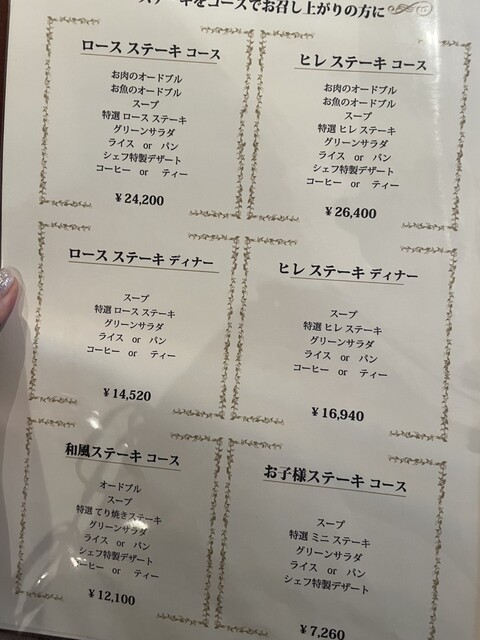 ステーキをコースでお召し上がりの方に
ロース ステーキ コース
お肉のオードブル
お魚のオードブル
スープ
特選 ロース ステーキ
グリーンサラダ
ライス or パン
シェフ特製デザート
コーヒー or ティー
¥24,200
ヒレ ステーキ コース
お肉のオードブル
お魚のオードブル
スープ
特選 ヒレ ステーキ
グリーンサラダ
ライス or パン
シェフ特製デザート
コーヒー or ティー
¥26,400
ロース ステーキ ディナー
スープ
特選 ロース ステーキ
グリーンサラダ
ライス or パン
コーヒー or ティー
¥14,520
ヒレ ステーキ ディナー
スープ
特選 ヒレ ステーキ
グリーンサラダ
ライス or パン
コーヒー or ティー
¥16,940
和風ステーキ コース
オードブル
スープ
特選 てり焼きステーキ
グリーンサラダ
ライス or パン
シェフ特製デザート
コーヒー or ティー
¥12,100
お子様ステーキ コース
スープ
特選 ミニ ステーキ
グリーンサラダ
ライス or パン
シェフ特製デザート
¥7,260